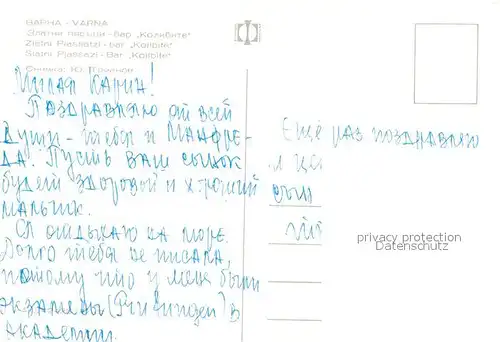 ВАРНА - VARNA
Златни пясъци - бар „Колибите“
Zlatni Piassatzi - bar „Kolibite“
Slatni Pjassazi - Bar „Kolibite“
Снимка: Ю.
Милая Карин!
Поздравляю от всей
души - тебя и Манфре-
да. Пусть ваш сынок
будет здоровой и хороший
мальчик.
Я отдыхаю на море.
Долго тебе не писала,
потому что у меня были
экзамены (Prüfungen) в
академии.
Еще раз поздравляю
и це
сын
privacy protection
Datenschutz